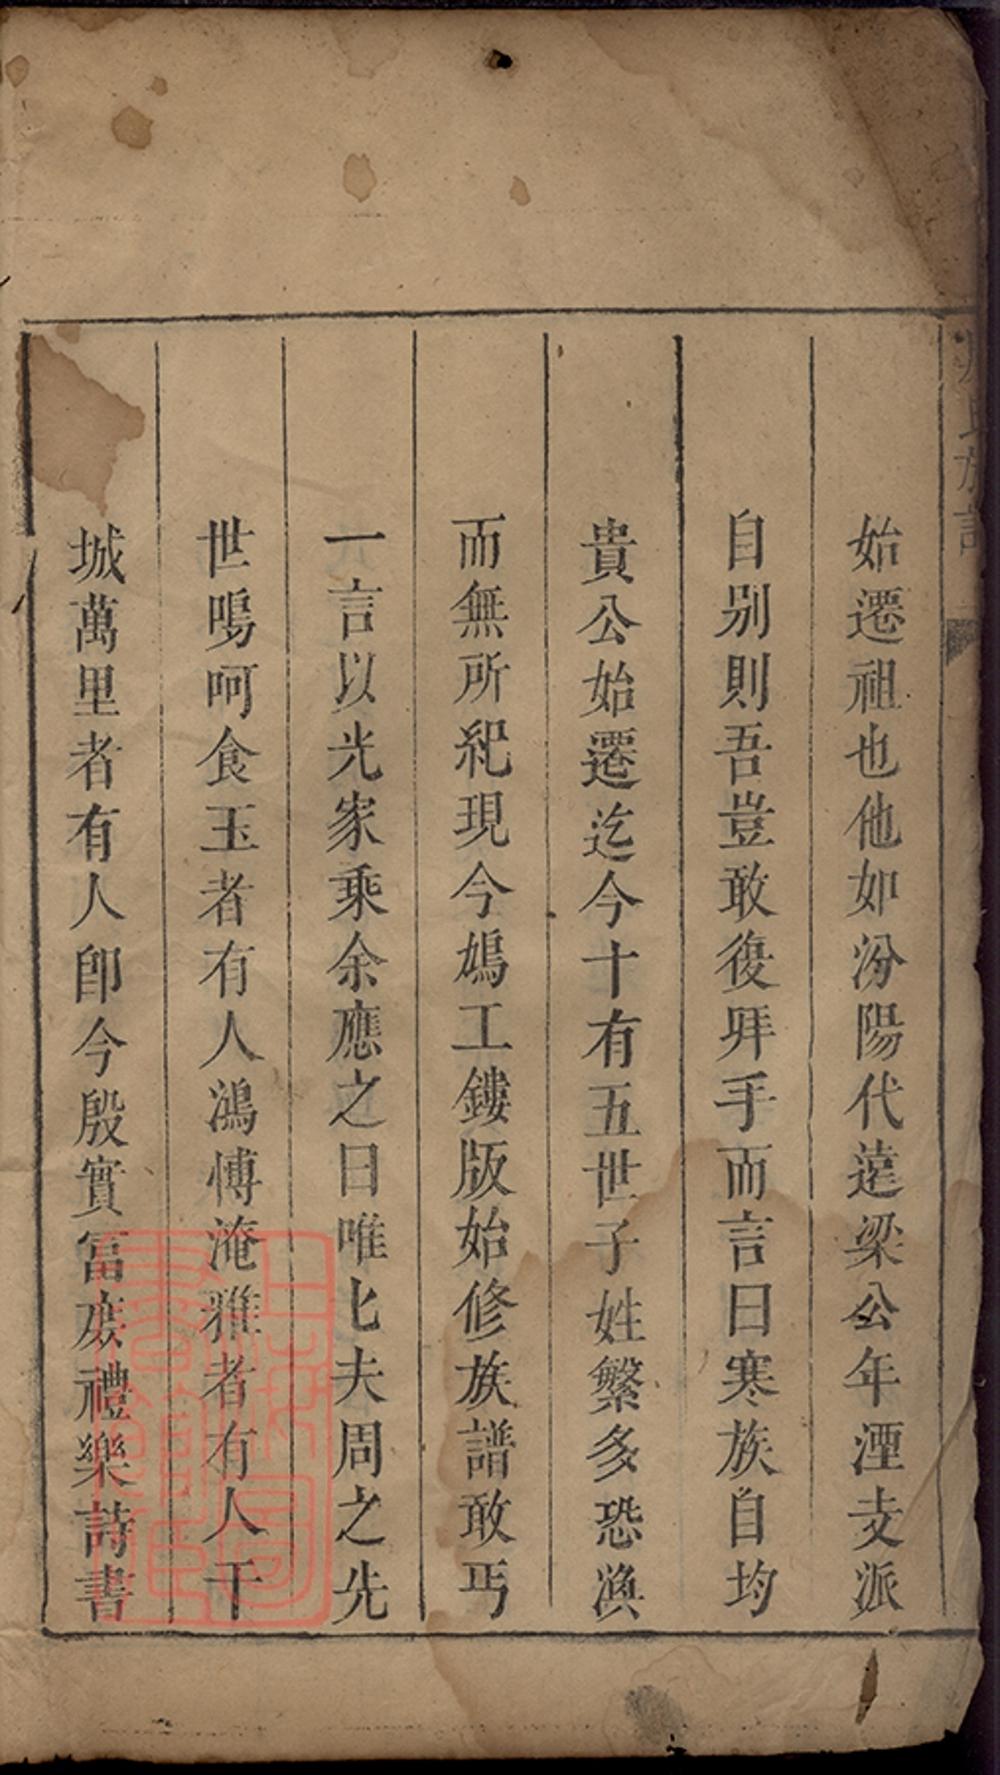 始遷祖也他如汾陽代遠梁公年湮支派
自别則吾豈敢復拜手而言曰寒族自均
貴公始遷迄今十有五世子姓繁多恐渙
而無所紀現今鳩工鏤版始修族譜敢丐
一言以光家乘余應之曰唯化夫周之先
世鳴呵食玉者有人鴻博淹雅者有人干
城萬里者有人即今殷實富庶禮樂詩書
氏族譜